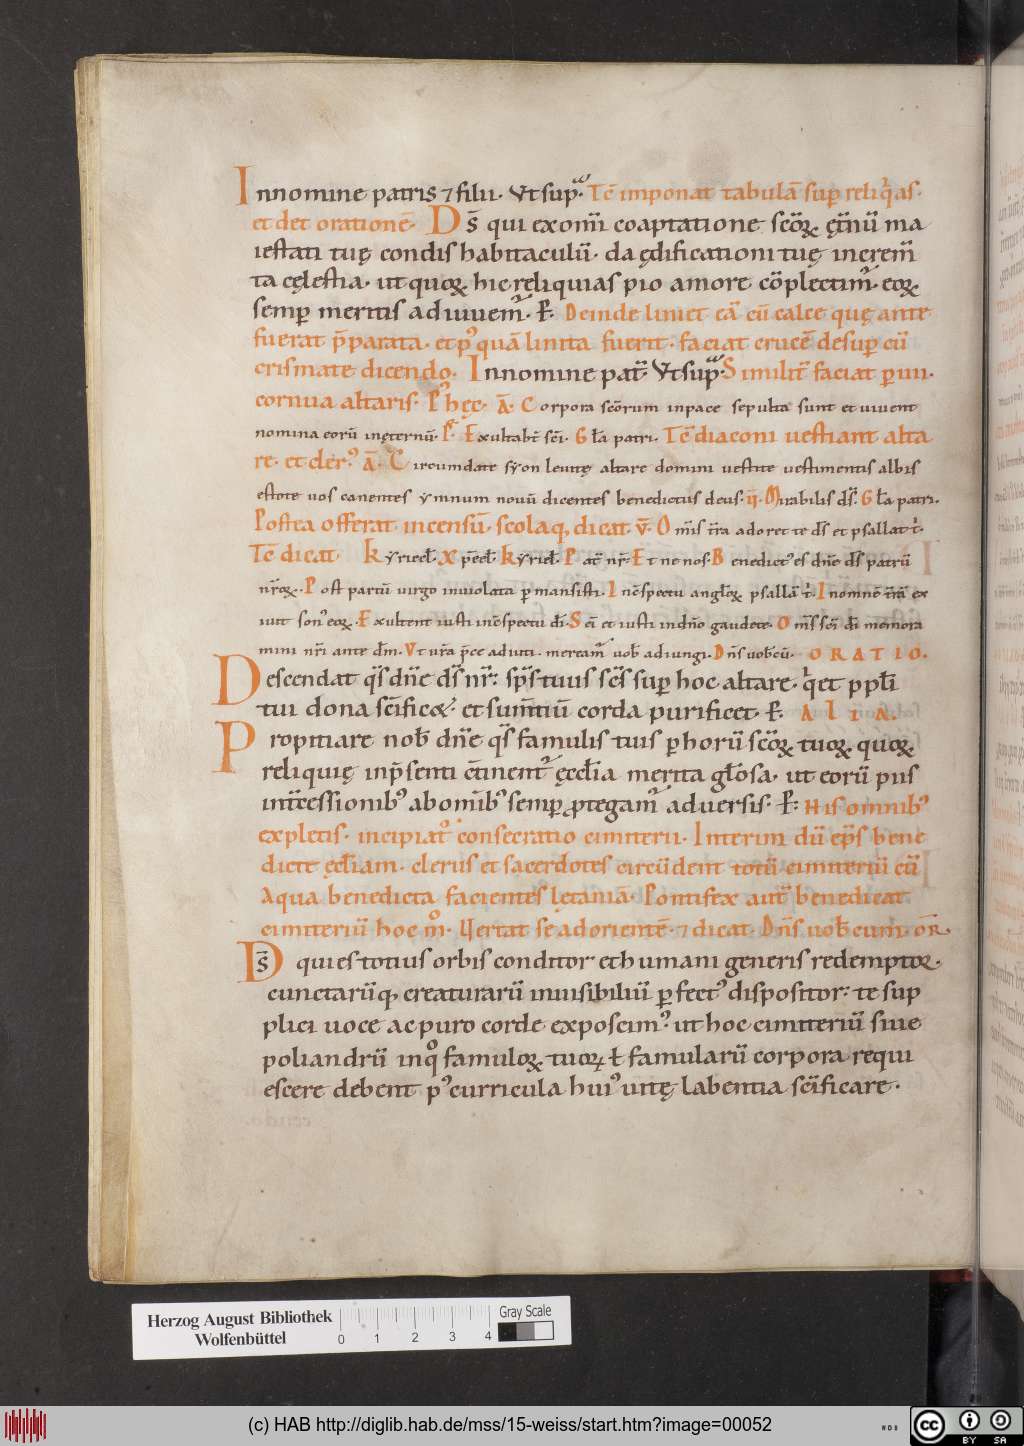 Innomine patris ⁊ filii. Vt sup͛. Tc̄ imponat tabulā sup reliq̇as.
et det orationē. Ds̄ qui exom̄i coaptatione sc̄oꝝ ęt̄nū ma
iestati tuę condis habitaculū. da ędificationi tuę increm̄
ta cęlestia. ut quoꝝ hic reliquias pio amore cōplectim᷒. eoꝝ
semp meritis adiuuem᷒. P̄. Deinde liniet eā cū calce quę ante
fuerat p̄parata. et p᷒quā linita fuerit. faciat crucē desup cū
crismate dicendo. Innomine pat̄. Vt sup͛. Similit̄ faciat ꝑ iiii.
cornua altaris. P᷒ hęc. ā. Corpora sc̄orum inpace sepulta sunt et uiuent
nomina eorū inęternū. P̄. Exultabt̄ sc̄i. Gl̄a patri. Tc̄ diaconi uestiant alta
re. et der᷒. ā. Circumdate sẏon leuitę altare domini uestite uestimentis albis
estote uos canentes ẏmnum nouū dicentes benedictus deus. ii. Mirabilis ds̄. Gl̄a patri.
Postea offerat incensū. scolaq; dicat. v̄. Om̄is t̄ra adoret te ds̄ et psallat t̄.
Tc̄ dicat. Kẏrieel̄. xp̄eel̄. Kẏriel̄. Pat̄ nr̄. Et ne nos. Benedict᷒ es dn̄e ds̄ patrū
nr̄oꝝ. Post partū uirgo inuiolata ꝑmansisti. Inc̄spectu angl̄oꝝ psallā t̄. Inomnē t̄rā ex
iuit son᷒ eoꝝ. Exultent iusti inc̄spectu dī. Sc̄i et iusti indn̄o gaudete. Om̄s sc̄i dī memora
mini nr̄i ante dm̄. Vt ur̄a p̄ce adiuti. meream᷒ uob̄ adiungi. Dn̄s uob̄cū. ORATIO.
Descendat qs̄ dn̄e ds̄ nr̄. sp̄s tuus sc̄s sup hoc altare. q̇ et ppl̄i
tui dona sc̄ificet. et sum̄tiū corda purificet. P̄. ALIA.
Propitiare nob̄ dn̄e qs̄ famulis tuis ꝑ horū sc̄oꝝ tuoꝝ. quoꝝ
reliquię inp̄senti c̄tinent᷒ ęccl̄ia merita gl̄osa. ut eorū piis
int̄cessionib᷒ abom̄ib᷒ semp ꝓtegam᷒ aduersis. P̄. His omnib᷒
expletis. incipiat᷒ consecratio cimiterii. Interim dū ep̄s bene
dicit ęccl̄iam. clerus et sacerdotes circūdent totū cimiteriū cū
Aqua benedicta facientes lętaniā. Pontifex aut̄ benedicat
cimiteriū hoc m̊. Vertat se adorientē. ⁊ dicat. Dn̄s uob̄cum. OR̄.
Ds̄ qui es totius orbis conditor et humani generis redemptor.
cunctarūq; creaturarū inuisibiliū ꝑfect᷒ dispositor. te sup
plici uoce ac puro corde exposcim᷒. ut hoc cimiteriū siue
poliandrū inq̊ famuloꝝ tuoꝝ ł famularū corpora requi
escere debent p᷒ curricula hui᷒ uitę labentia sc̄ificare.
Herzog August Bibliothek
Wolfenbüttel
0 1 2 3 4
Gray Scale
(c) HAB http://diglib.hab.de/mss/15-weiss/start.htm?image=00052
cc BY SA